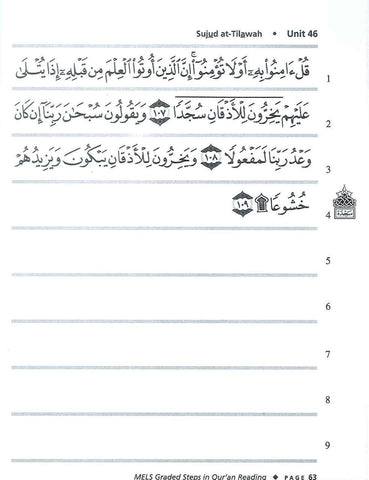 Sujud at-Tilawah • Unit 46
قُلْ ءَامِنُوا۟ بِهِۦٓ أَوْ لَا تُؤْمِنُوٓا۟ ۚ إِنَّ ٱلَّذِينَ أُوتُوا۟ ٱلْعِلْمَ مِن قَبْلِهِۦٓ إِذَا يُتْلَىٰ 1
عَلَيْهِمْ يَخِرُّونَ لِلْأَذْقَانِ سُجَّدًا ۩ ١٠٧ وَيَقُولُونَ سُبْحَٰنَ رَبِّنَآ إِن كَانَ 2
وَعْدُ رَبِّنَا لَمَفْعُولًا ١٠٨ وَيَخِرُّونَ لِلْأَذْقَانِ يَبْكُونَ وَيَزِيدُهُمْ 3
خُشُوعًا ۩ ١٠٩ 4
5
6
7
8
9
MELS Graded Steps in Qur'an Reading ◆ PAGE 63